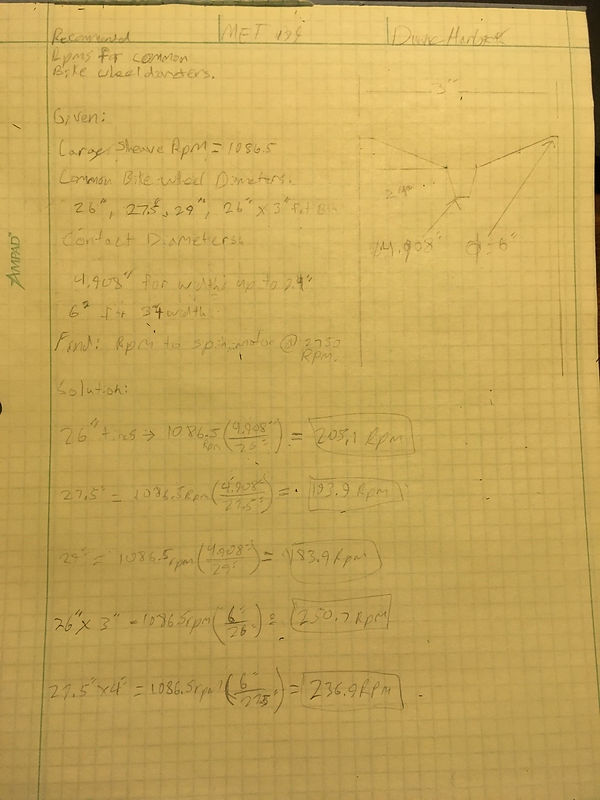 Recommend
Rpms for common
Bike wheel diameters.
MET
Given:
Large Sheave Rpm = 1086.5
Common Bike wheel Diameters.
26", 27.5", 29", 26" x 3" fat
Contact Diameters:
4.908" for widths up to 2.4"
6" for 3" width
Find: Rpm to spin motor @ 2750
Rpm.
Solution:
26" tires → 1086.5 Rpm (4.908"/26") = 205.1 Rpm
27.5" = 1086.5 Rpm (4.908"/27.5") = 193.9 Rpm
29" = 1086.5 rpm (4.908"/29") = 183.9 Rpm
26" x 3" = 1086.5 rpm (6"/26") = 250.7 Rpm
27.5" x 4" = 1086.5 rpm (6"/27.5") = 236.9 Rpm
3"
4.908"
6"
AMPAD